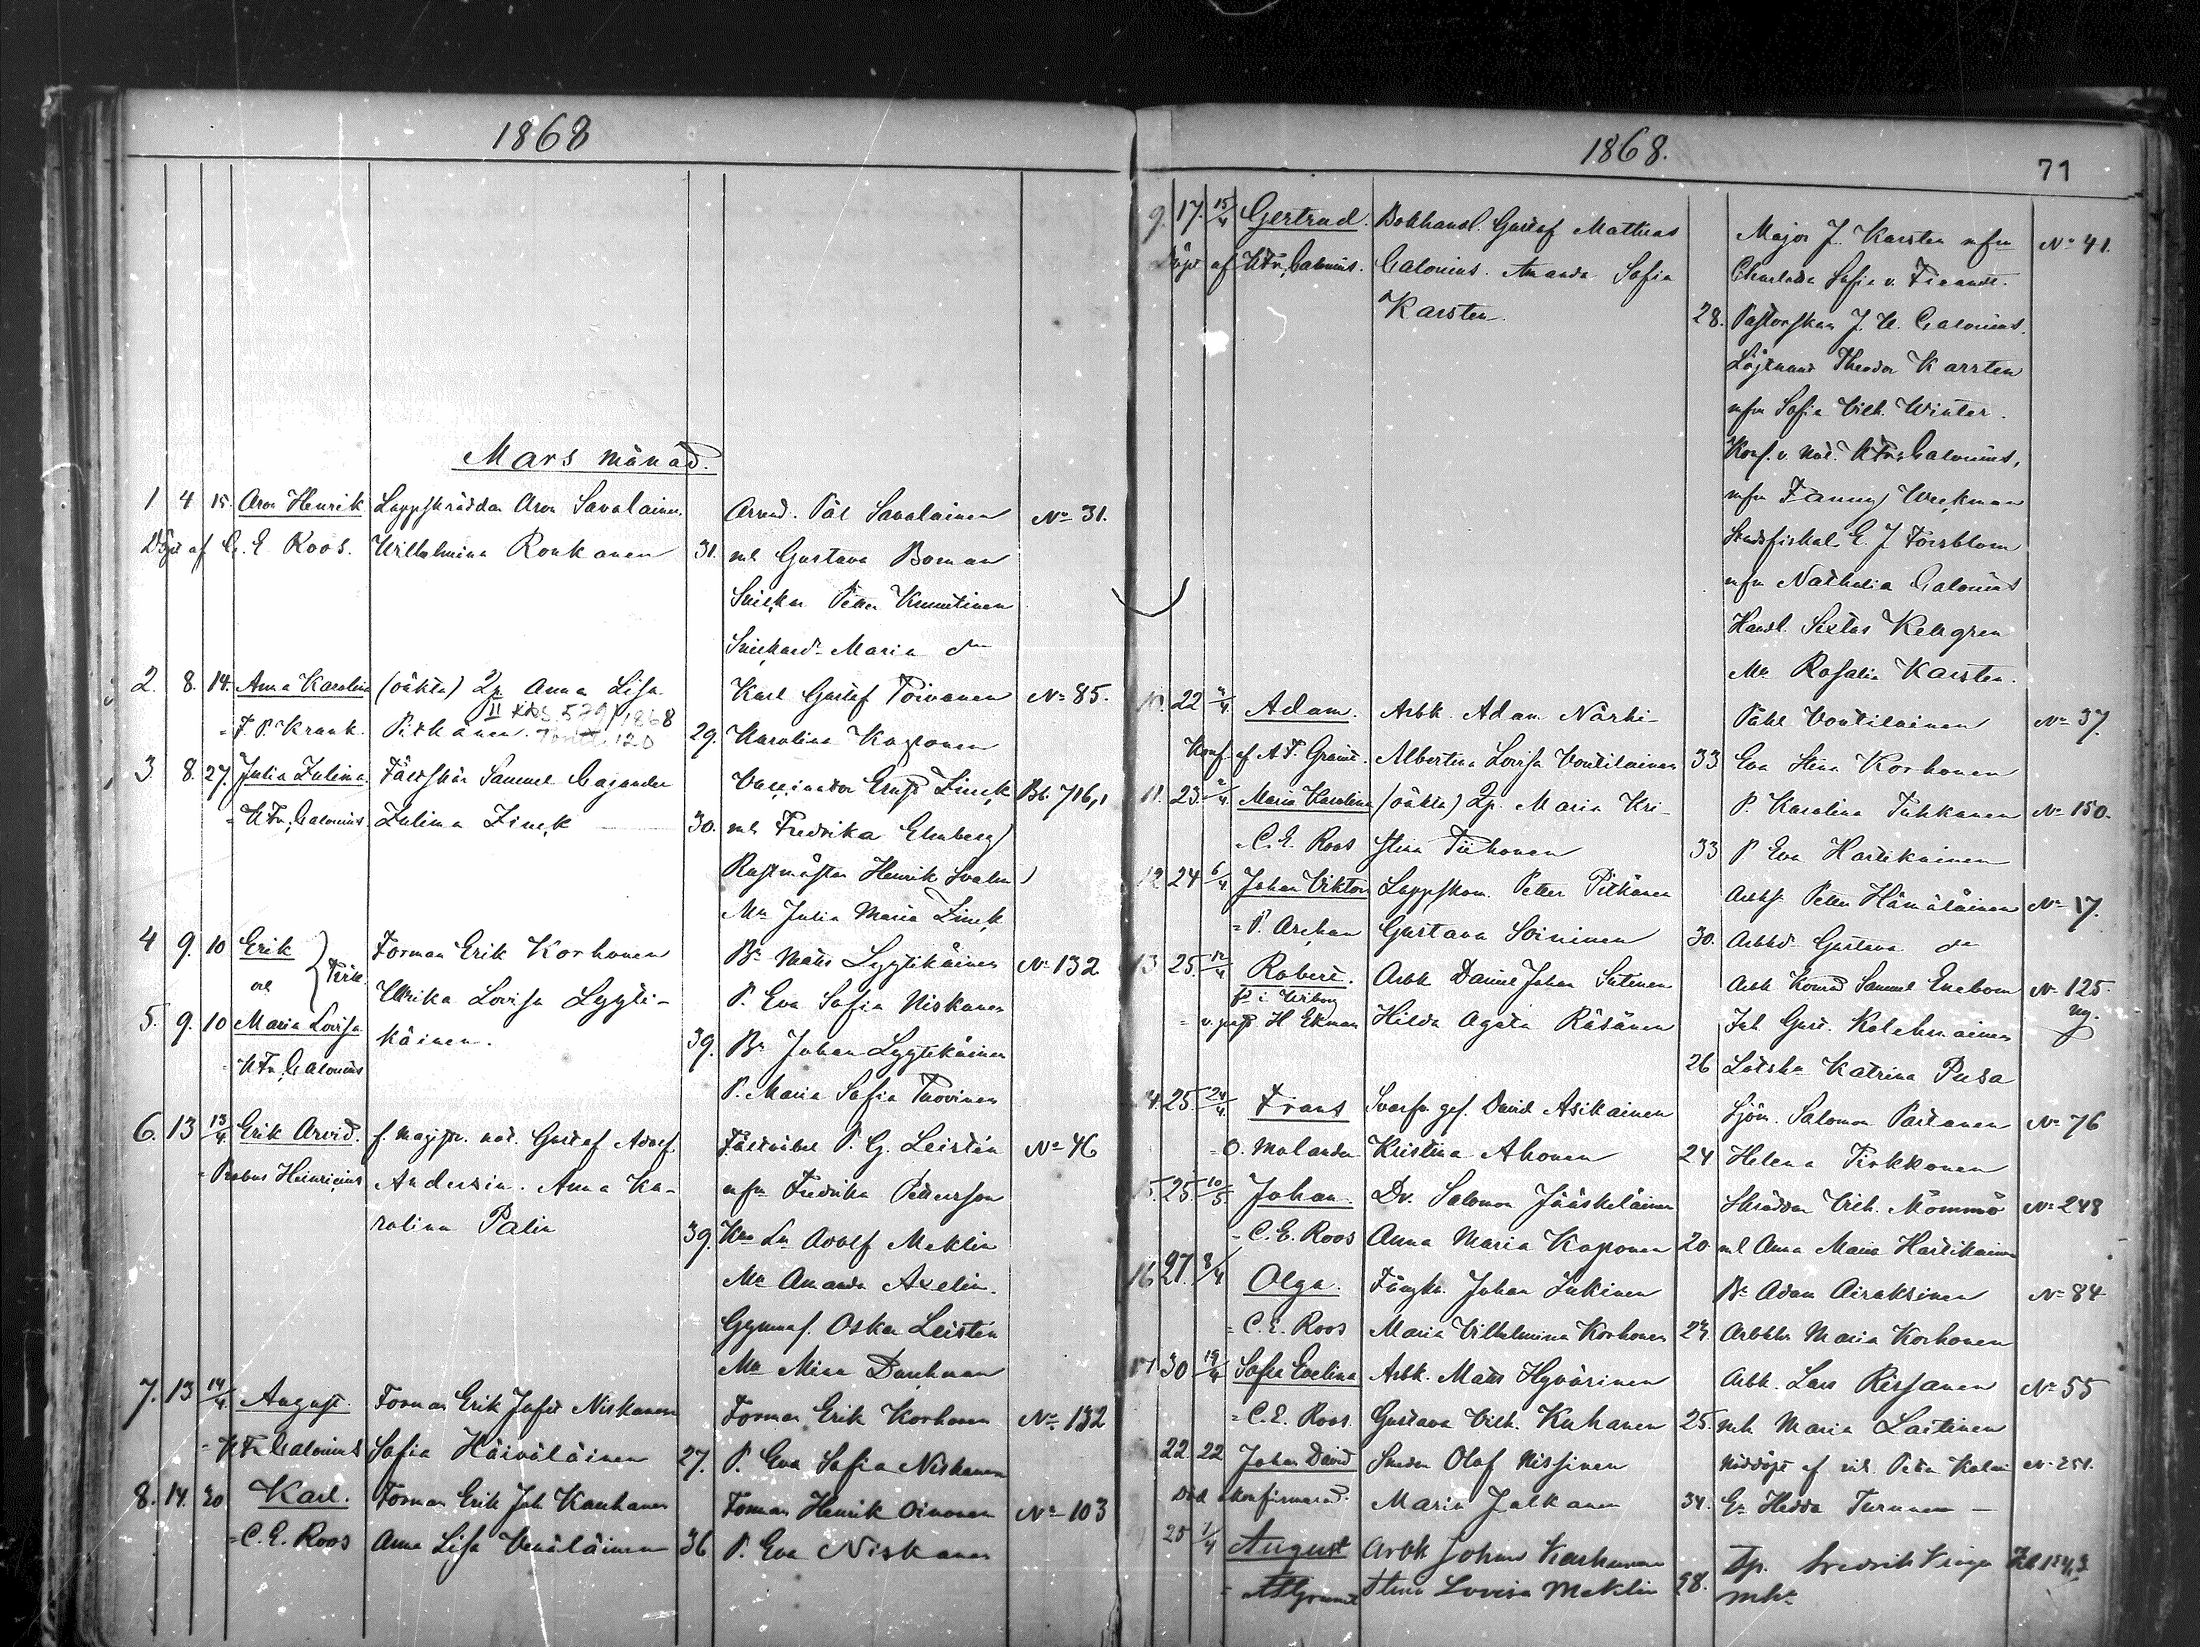 1868
Mars månad.
1 4 15. Aron Henrik Lappskräddar Aron Savolainen. Arvid. Pål Savolainen No 31.
Döpt af C. E. Roos. Wilhelmina Ronkanen 31. ml Gustava Boman
Snickar Petter
Maria dn
2. 8. 14. Anna Karolina (oäkta) Qp Anna Lisa Karl Gustaf Toivanen No 85.
" F. P. Krank. Pitkänen. II RKB. 579/1868 29. Karolina Kaponen
3. 8. 27. Julia Zulima. Fältskär Samuel Cajander Vaccinator Zinck Bl. 716,1
" Calonius. Zulima Zinck 30. ml Fredrika Elmberg
Rustmästar Henrik
Mn Julia Maria Zinck
4 9. 10 Erik Forman Erik Korhonen Bn Mats Lyytikäinen No 132
och Ulrika Lovisa Lyyti- P. Eva Sofia Niskanen
5. 9. 10 Maria Lovisa käinen. 39. Bn Johan Lyytikäinen
" Calonius P. Maria Sofia Tuovinen
6. 13 13/4 Erik Arvid. f. magistr. Gustaf Adolf P. G. Leistén No 46
" Heinricius Andersin. Anna Ka- mfru Fredrika Pettersson
rolina Palin 39. Adolf Meklin
Mn Amanda Axelin.
Gymnas. Oskar Leistén
Mn Mina
7. 13 14/4 August. Forman Erik Josef Niskanen Forman Erik Korhonen No 132
" Calonius Sofia Häiväläinen 27. P. Eva Sofia Niskanen
8. 14. 20 Karl. Forman Erik Joh Kauhanen Forman Henrik Oinonen No 103
" C. E. Roos Anna Lisa Venäläinen 36 P. Eva Niskanen
1868.
71
9. 17. 15/4 Gertrud. Bokhandl. Gustaf Mathias Major J. Karsten mfru No 41.
Döpt af Calonius. Calonius. Amanda Sofia Charlotta Sofia v. Fieandt.
Karsten. 28. Pastorskan J. U. Calonius.
Löjtnant Theodor Karsten
mfru Sofia Vilh. Winter.
Calonius,
mfru Fanny Weckman
Stadsfiskal E. J. Forsblom
mfru Nathalia Calonius
Handl. Sixtus Kellgren
Mn Rosalie Karsten.
10. 22 /4 Adam. Arbk. Adam Närhi- Påhl Voutilainen No 37.
Konf. af A. F. Granit. Albertina Lovisa Voutilainen 33 Eva Stina Korhonen
11. 23. /4 Maria Karolina (oäkta) Qp. Maria Kri- P. Karolina Tuhkanen No 150.
" C. E. Roos stina Tiihonen 33 P Eva Hartikainen
12 24 6/4 Johan Viktor Lappskom. Petter Pitkänen Petter Hämäläinen No 17.
" P. Gustava Soininen 30. Gustava dn
13 25. 12/4 Robert. Arbk Daniel Johan Sutinen Arbk Konrad Samuel Enebom No 125
H Ekman Hilda Agata Räsänen Joh. Gust. Kolehmainen ny.
26 Katrina Pusa
14. 25. 24/4 Frans Svarfv. ges. David Asikainen Sjöm. Salomon Partanen No 76
" O. Molander Kristina Ahonen 24 Helena Pirkkonen
15. 25. 10/5 Johan. Dr. Salomon Jääskeläinen Skräddar Vilh. Mömmö No 248
" C. E. Roos Anna Maria Kaponen 20 ml Anna Maria Hartikainen
16 27. 8/4 Olga. Johan Jukinen Bn Adam Airaksinen No 84
" C. E. Roos Maria Vilhelmina Korhonen 24. Maria Korhonen
17 30 19/4 Sofia Evelina Arbk. Mats Hyvärinen Arbk. Lars Rissanen No 55
" C. E. Roos Gustava Vilh. Kuhanen 25. mh Maria Laitinen
22 22 Johan David Olof Nissinen Nöddöpt af No 251.
Död okonfirmerad. Maria Jalkanen 34. En Hedda Turunen
25 1/4 August Arbk Johan Fredrik
Stina Lovisa Meklin 28. mh